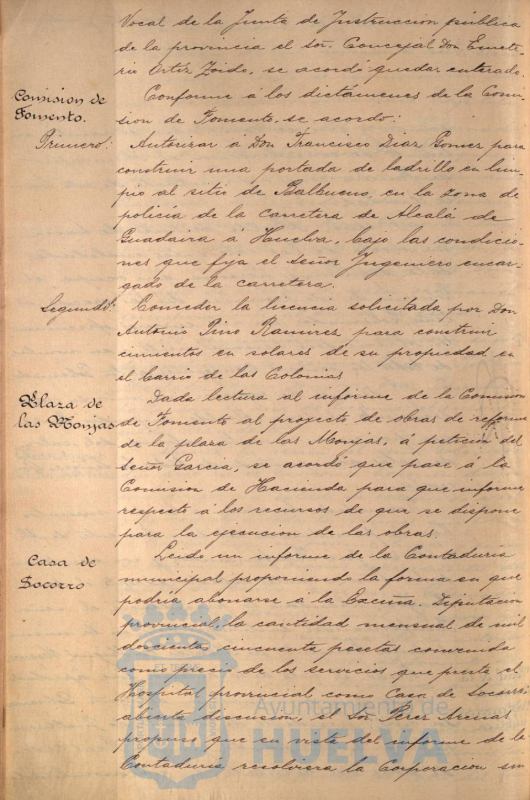 Vocal de la Junta de Instruccion pública
de la provincia el Sor. Concejal Don Emete-
rio Ortiz Zoido, se acordó quedar enterado.
Comision de
Fomento.
Conforme á los dictámenes de la Comi-
sion de Fomento, se acordo:
Primero:
Autorizar á Don Francisco Diaz Gomez para
construir una portada de ladrillo en lim-
pio al sitio de Balbueno, en la zona de
policía de la carretera de Alcalá de
Guadaira á Huelva, bajo las condicio-
nes que fija el Señor Ingeniero encar-
gado de la carretera.
Segundo:
Conceder la licencia solicitada por Don
Antonio Pino Ramirez para construir
cimientos en solares de su propiedad en
el barrio de las Colonias
Plaza de
las Monjas
Dada lectura al informe de la Comision
de Fomento al proyecto de obras de reforma
de la plaza de las Monjas, á peticion del
Señor Garcia, se acordó que pase á la
Comision de Hacienda para que informe
respecto á los recursos de que se dispone
para la ejecucion de las obras.
Casa de
Socorro
Leido un informe de la Contaduria
municipal proponiendo la forma en que
podria abonarse á la Excma. Diputacion
provincial, la cantidad mensual de mil
doscientas cincuenta pesetas convenida
como precio de los servicios que preste el
Hospital provincial como Casa de Socorro,
abierta discusion, el Sor. Perez Arenal
propuso que en vista del informe de la
Contaduria resolviera la Corporacion sin
Ayuntamiento de
HUELVA